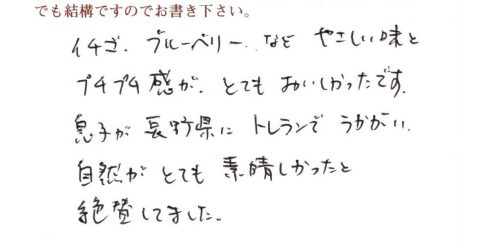 でも結構ですのでお書き下さい。
イチゴ、ブルーベリー、など やさしい味と
プチプチ感が、とても おいしかったです。
息子が 長野県に トレランで うかがい、
自然が とても 素晴しかったと
絶賛してました。